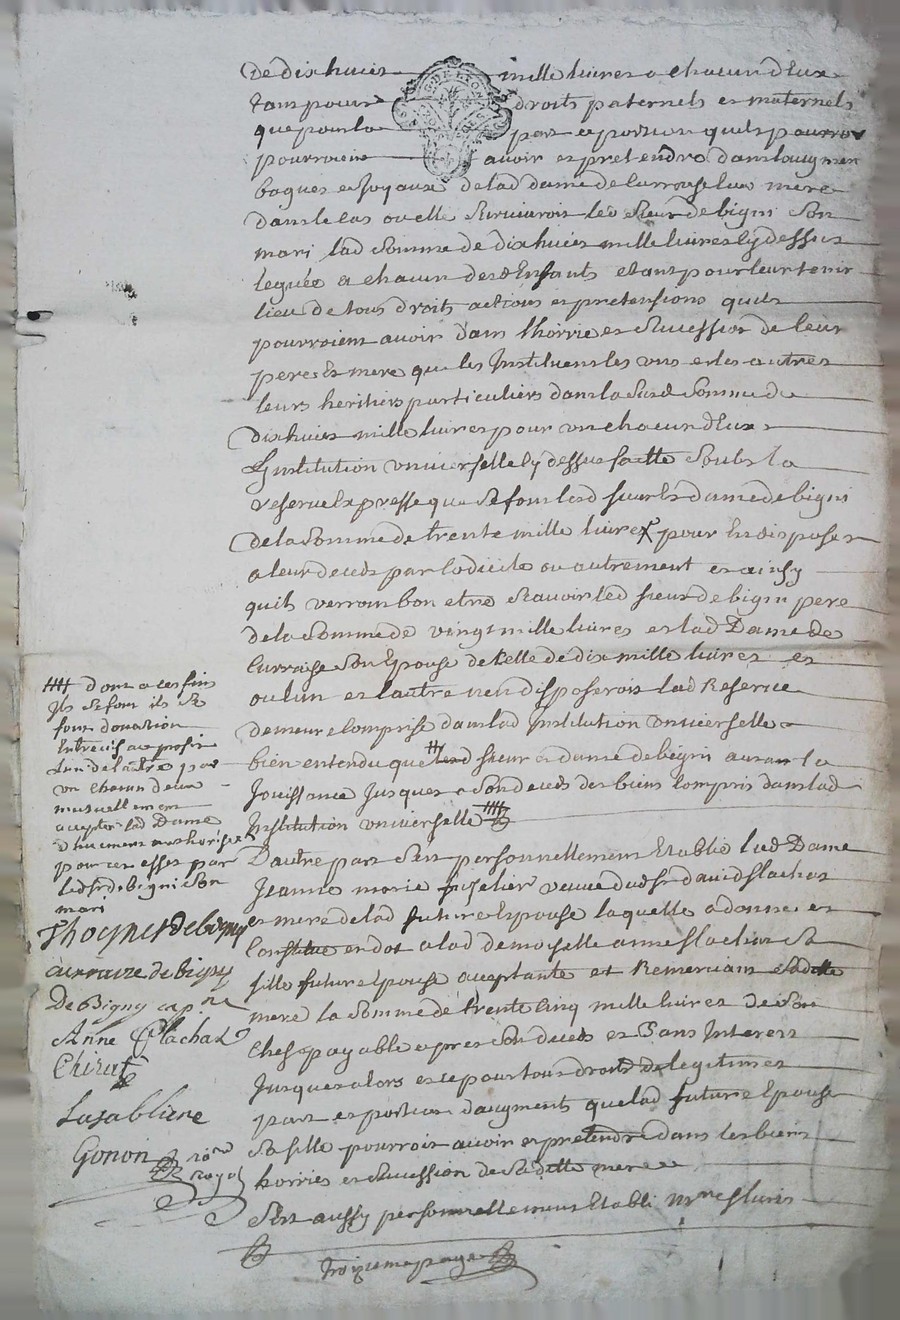 de dixhuict mille livres a chacun d'Eux
tam pour droits paternels et maternels
que pour la part et portion quils pourroi
pourroient avoir et pretendre dans laugmen
bagues et Joyaux de lad dame de Curraise leur mere
dans le cas ou elle Survivroit led Sieur de bigni Son
mari lad Somme de dixhuict mille livres cy dessus
leguée a chacun desd Enfants etant pour leur tenir
lieu de tous droits actions et pretensions quils
pourroient avoir dans lhoirie et Succession de leur
pere Et mere que les Instituent les uns et les autres
leurs heritiers particuliers dans lasusd Somme de
dixhuict mille livres pour un chacun d'Eux
L'institution universelle cy dessus faitte Soubs la
reserve Expresse que Se font lesd sieur Et dame de bigni
de la Somme de trente mille livres pour En disposer
a leur deces par Codicile ou autrement et ainsy
quils verront bon etre Scavoir led sieur de bigni pere
de la Somme de vingt mille livres et lad Dame de
Curraise Son Epouse de Celle de dix mille livres et
ou lun et lautre nen disposerois lad Reserve
demeure Comprise dans lad Institution universelle
bien entendu que lesd sieur et dame de bigni auront la
Jouissance Jusques a Son deces des biens Compris dans lad
Institution universelle
D'autre part S'est personnellement Etablie lad Dame
Jeanne marie fuzelier veuve dud Sr david flachat
et mere de lad future Epouse laquelle a donné et
Constitué en dot a lad demoiselle anne flachat Sa
fille future Epouse acceptante et Remerciant Sadite
mere la Somme de trente Cinq mille livres de Son
Chef payable apres Son deces et Sans Interest
Jusques alors et ce pour tous droits de legitime
part et portion daugment que lad future Epouse
Sa fille pourroit avoir et pretendre dans les biens
hoiries et Succession de Sadite mere
S'est aussy personnellement Etabli
troizieme page
dont a ces fins
Ils Se font
font donation
lun de lautre par
un chacun deux
mutuellement
acceptée lad Dame
duement authorisée
pour cet effet par
led sr de bigni Son
mari
Thoynet de bigny
Curraize de Bigny
De Bigny cap.ne
Anne Flachat
Chirat
Lasabliere
Gonon no.re
Royal